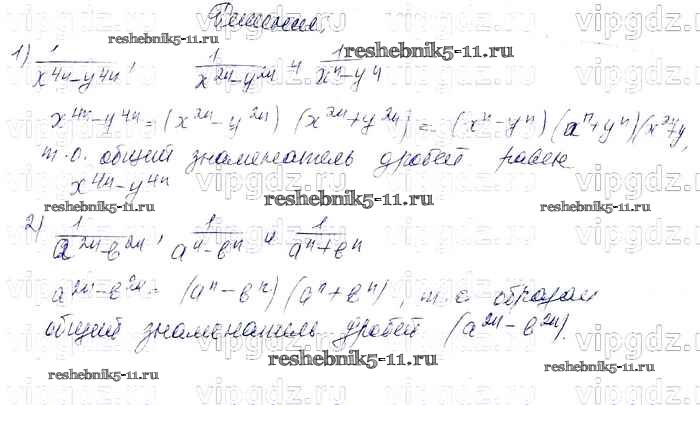 Решения;
1) 1/(x^4n - y^4n), 1/(x^2n - y^2n) и 1/(x^n - y^n)
x^4n - y^4n = (x^2n - y^2n) (x^2n + y^2n) = (x^n - y^n) (x^n + y^n) (x^2n + y
т.о. общий знаменатель дробей равен
x^4n - y^4n
2) 1/(a^2n - b^2n), 1/(a^n - b^n) и 1/(a^n + b^n)
a^2n - b^2n = (a^n - b^n) (a^n + b^n), т.о образом
общий знаменатель дробей (a^2n - b^2n).
reshebnik5-11.ru
reshebnik5-11.ru
reshebnik5-11.ru
reshebnik5-11.ru
reshebnik5-11.ru
reshebnik5-11.ru
reshebnik5-11.ru
reshebnik5-11.ru
vipgdz.com